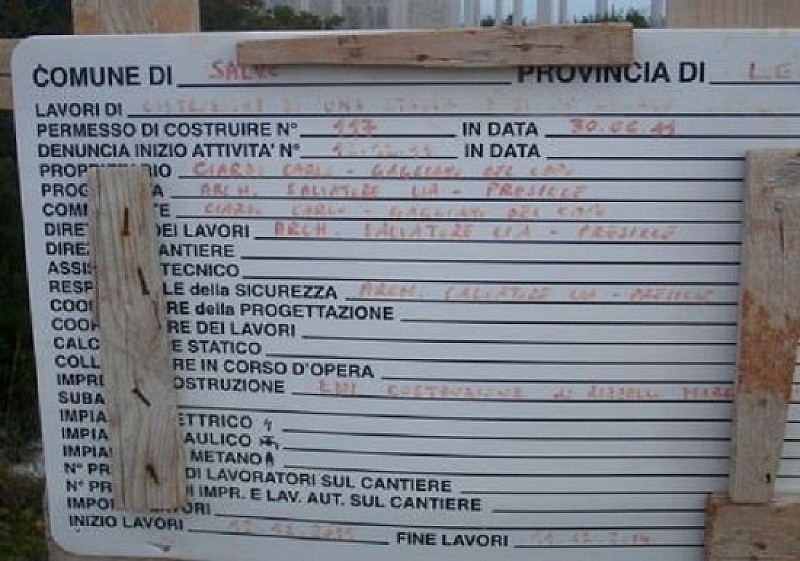 COMUNE DI SALVE PROVINCIA DI LE
LAVORI DI COSTRUZIONE DI UNA
PERMESSO DI COSTRUIRE N° 117 IN DATA 30.06.11
DENUNCIA INIZIO ATTIVITA' N° IN DATA
PROPRIETARIO CIARDI CARLO - GAGLIANO DEL CAPO
PROG TA ARCH. SALVATORE LIA - PRESICCE
COM TE CIARDI CARLO - GAGLIANO DEL CAPO
DIRET DEI LAVORI ARCH. SALVATORE LIA - PRESICCE
DIREZ ANTIERE
ASSIS TECNICO
RESP LE della SICUREZZA ARCH. SALVATORE LIA - PRESICCE
COO RE della PROGETTAZIONE
COOR RE DEI LAVORI
CALC E STATICO
COLL RE IN CORSO D'OPERA
IMPRE OSTRUZIONE EDIL COSTRUZIONE di
SUBA
IMPIA ETTRICO
IMPIA AULICO
IMPIA METANO
N° PR DI LAVORATORI SUL CANTIERE
N° PR DI IMPR. E LAV. AUT. SUL CANTIERE
IMPO AVORI
INIZIO LAVORI 12.12.2011 FINE LAVORI 11.12.2014